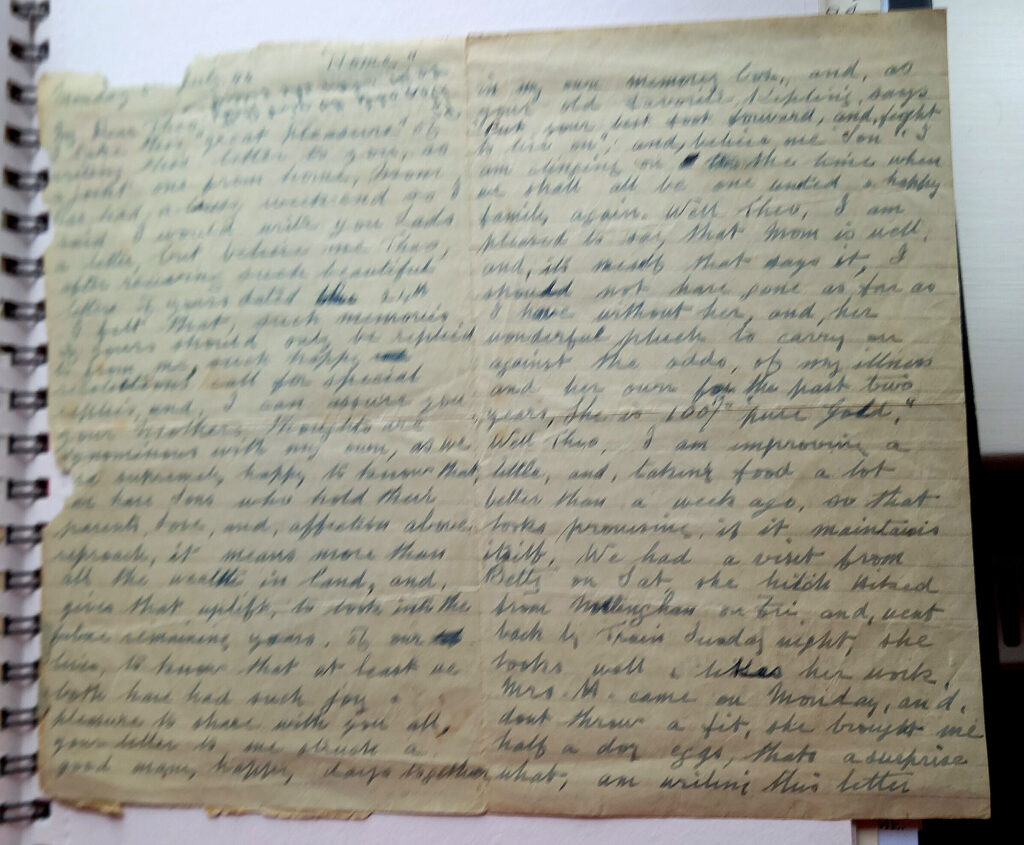 "Home"
Monday July 44
My Dear Theo,
"I take this "great pleasure" of
writing this letter to you, as
a joint one from home, Mom
has had a busy week-end so I
said I would write you Lads
a letter but believe me Theo,
after receiving such beautiful
letters of yours dated 24th
I felt that, such memories
of yours should only be replied
to from me, such happy
recollections, call for special
replies, and, I can assure you
your Mothers thoughts are
synonimous with my own, as we
are extremely happy, to know that,
we have Sons who hold their
parents love, and, affection above
reproach, it means more than
all the wealth in land, and,
gives that uplift, to look into the
future remaining years. Of our
lives, to know that at least we
both have had such joy &
pleasure to share with you all,
your letter to me struck a
good many, happy, days together
in my own memory box, and, as
your old favorite Kipling, says
"Put, your best foot forward, and, fight
to live on", and, believe me Son "I
am clinging on to the time when
we shall all be one united & happy
family again. Well Theo, I am
pleased to say, that Mom is well,
and, its meself that says it, I
should not have gone as far as
I have without her, and, her
wonderful pluck to carry on
against the odds, of my illness
and her own for the past two
years, She is 100% "pure Gold,"
Well Theo, I am improving a
little, and, taking food a lot
better than a week ago, so that
looks promising, if it maintains
itself, We had a visit from
Betty on Sat, she hitch hiked
from on Fri, and, went
back by Train Sunday night, she
looks well & likes her work,
Mrs. M. came on Monday, and,
dont throw a fit, she brought me
half a doz eggs, thats a surprise
what, am writing this letter